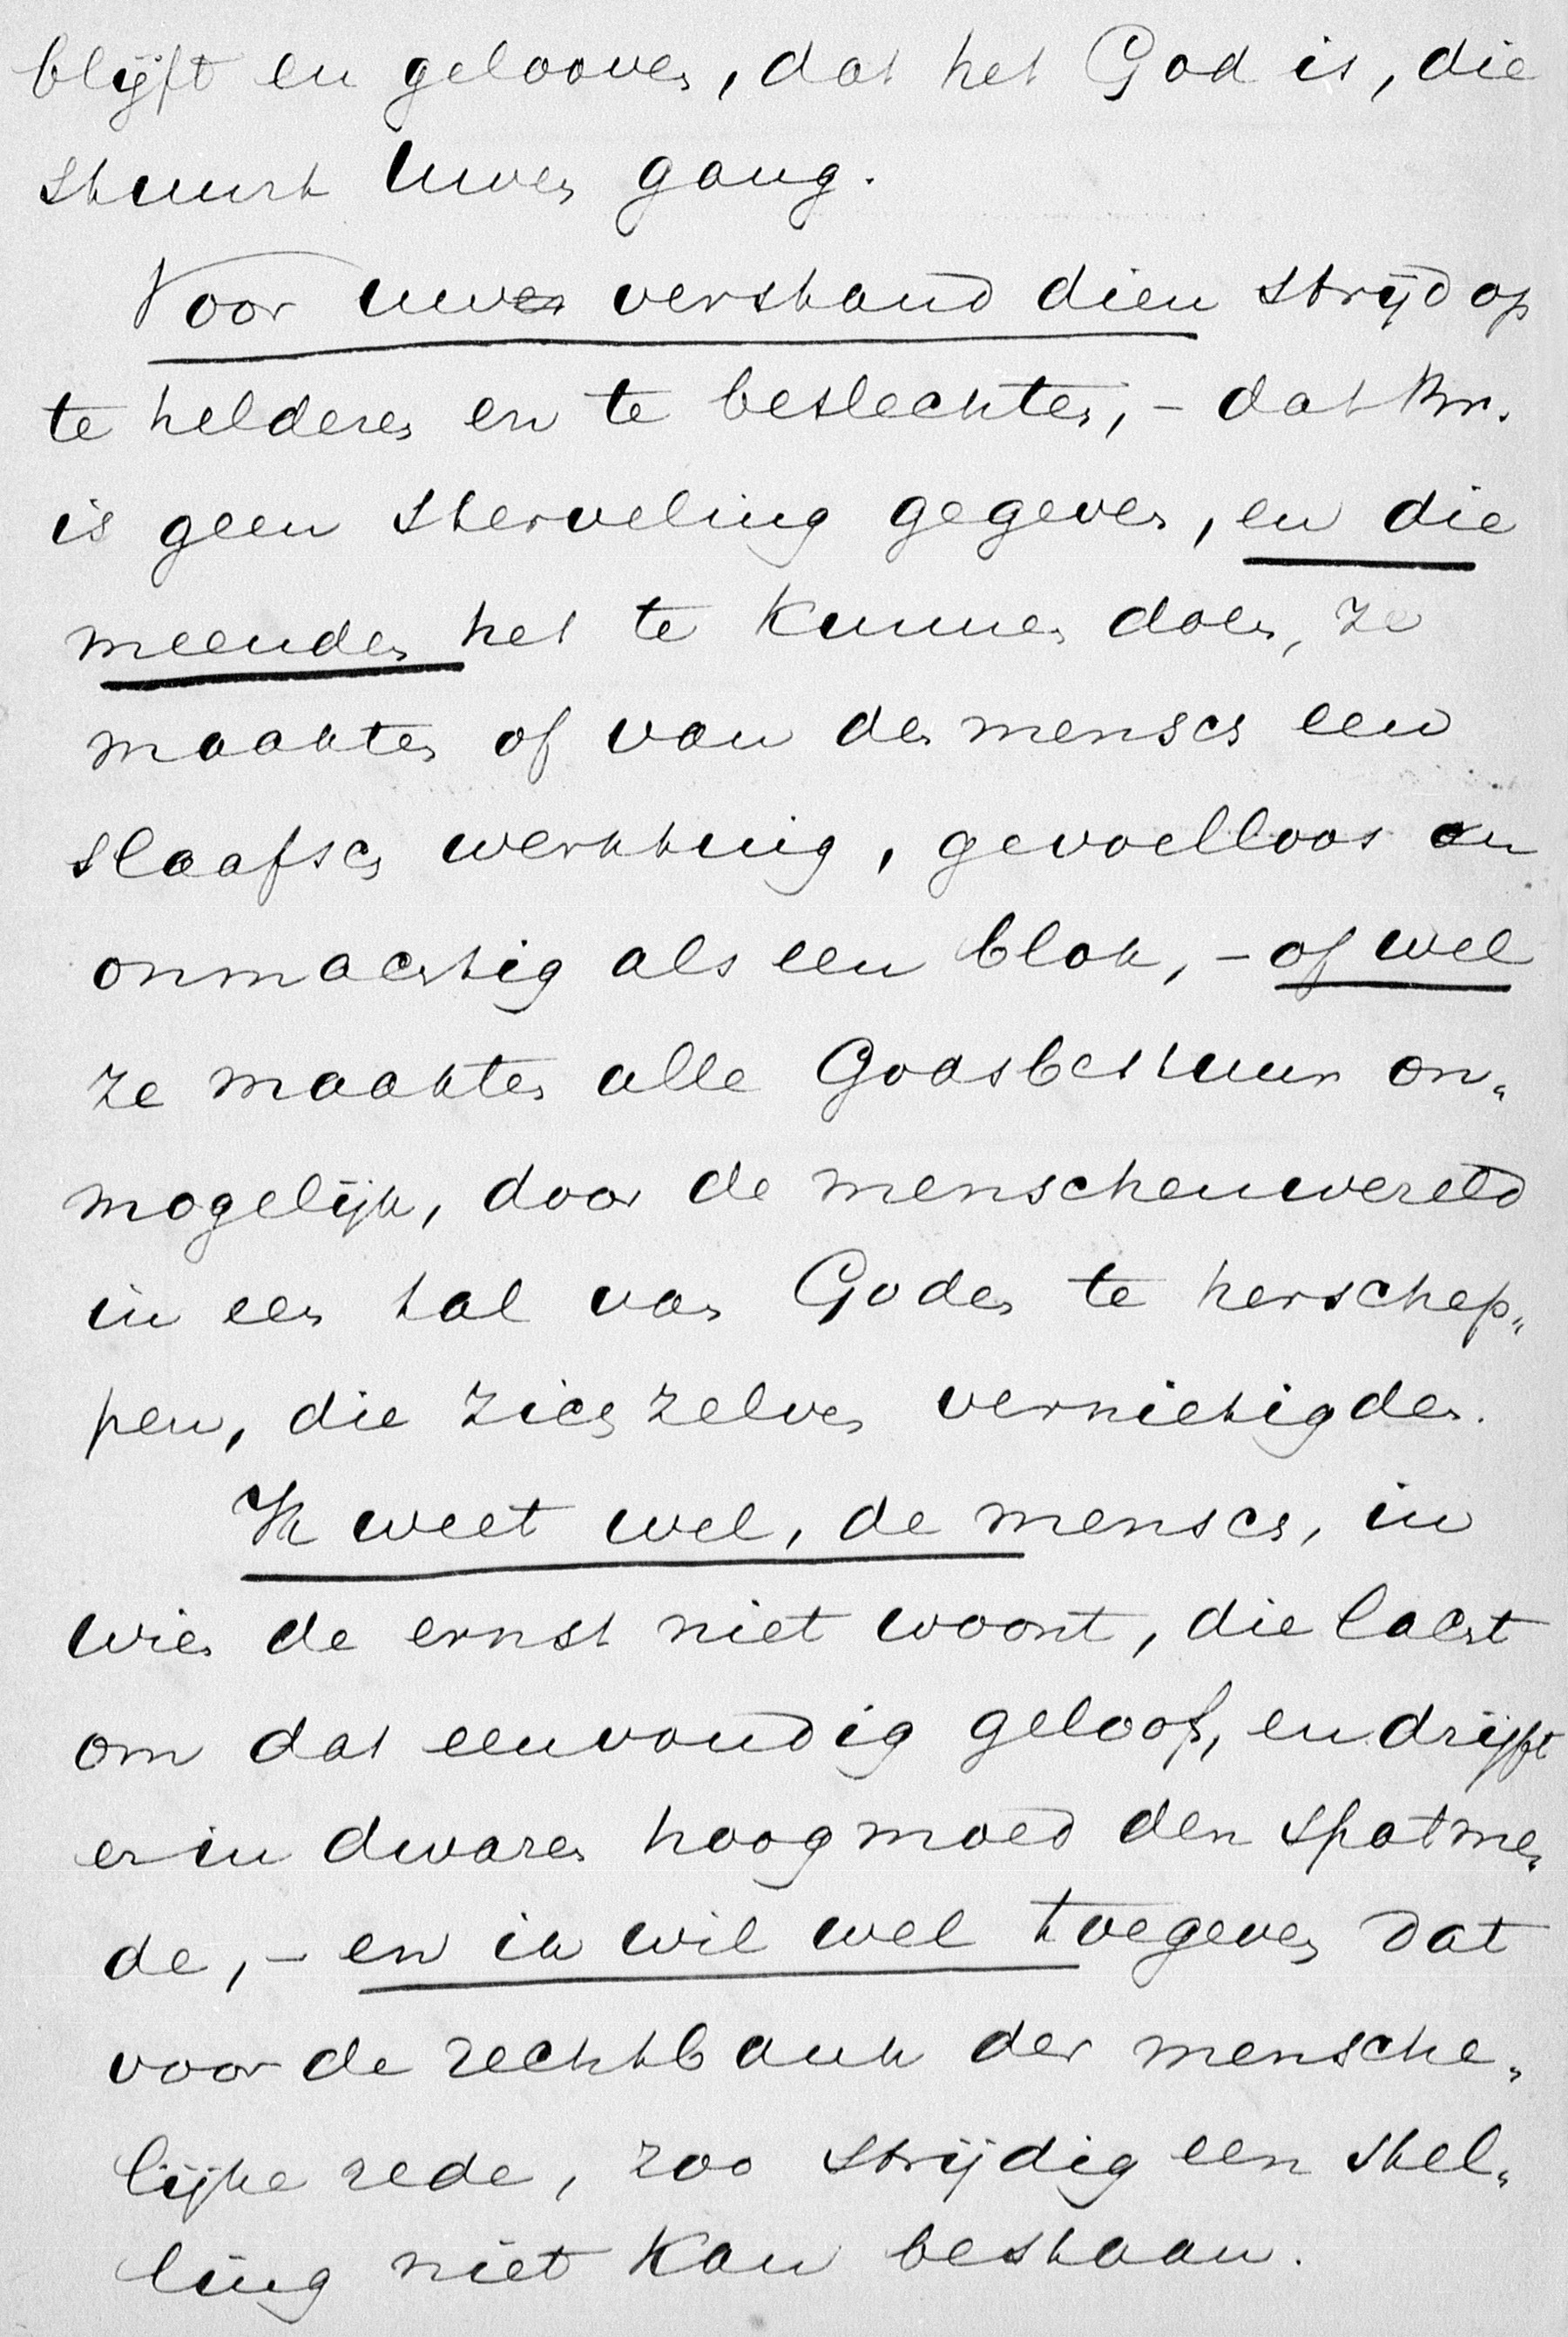 blijft en gelooven, dat het God is, die
stuurt Uwen gang.
Voor uwen verstand dien strijd op
te helderen en te beslechten, – dat Br.
is geen sterveling gegeven, en die
meenden het te kunnen doen, ze
maakten of van den mensch een
slaafsch werktuig, gevoelloos en
onmachtig als een blok, – of wel
ze maakten alle Godsbestuur on„
mogelijk, door de menschenwereld
in een tal van Goden te herschep„
pen, die zich zelven vernietigden.
Ik weet wel, de mensch, in
wien de ernst niet woont, die lacht
om dat eenvoudig geloof, en drijft
er in dwazen hoogmoed den spot me„
de, – en ik wil wel toegeven dat
voor de rechtbank der mensche„
lijke rede, zoo strijdig een stel„
ling niet kan bestaan.